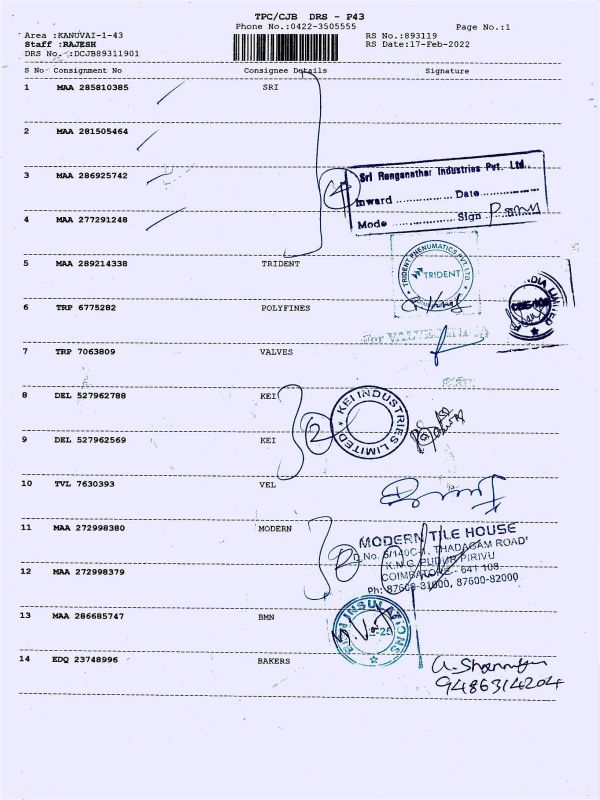 TPC/CJB DRS - P43
Phone No.:0422-3505555
Page No.:1
Area :KANUVAI-1-43
RS No.:893119
Staff :RAJESH
RS Date:17-Feb-2022
DRS No. :DCJB89311901
S No Consignment No Consignee Details Signature
1 MAA 285810385 SRI
2 MAA 281505464
3 MAA 286925742
4
Sri Ranganathar Industries Pvt. Ltd.,
Inward .................. Date..................
Mode .................. Sign
4 MAA 277291248
5 MAA 289214338 TRIDENT
TRIDENT PNEUMATICS PVT LTD
TRIDENT
6 TRP 6775282 POLYFINES
INDIA LIMITED
For VALVES INDIA
7 TRP 7063809 VALVES
8 DEL 527962788 KEI
2
KEI INDUSTRIES LIMITED
9 DEL 527962569 KEI
10 TVL 7630393 VEL
11 MAA 272998380 MODERN
2
MODERN TILE HOUSE
D.No. 5/140C-1, THADAGAM ROAD
K.N.G. PUDUR PIRIVU
COIMBATORE - 641 108.
Ph: 87600-31000, 87600-82000
12 MAA 272998379
13 MAA 286685747 BMN
BMN INSULATIONS
14 EDQ 23748996 BAKERS
9486314204